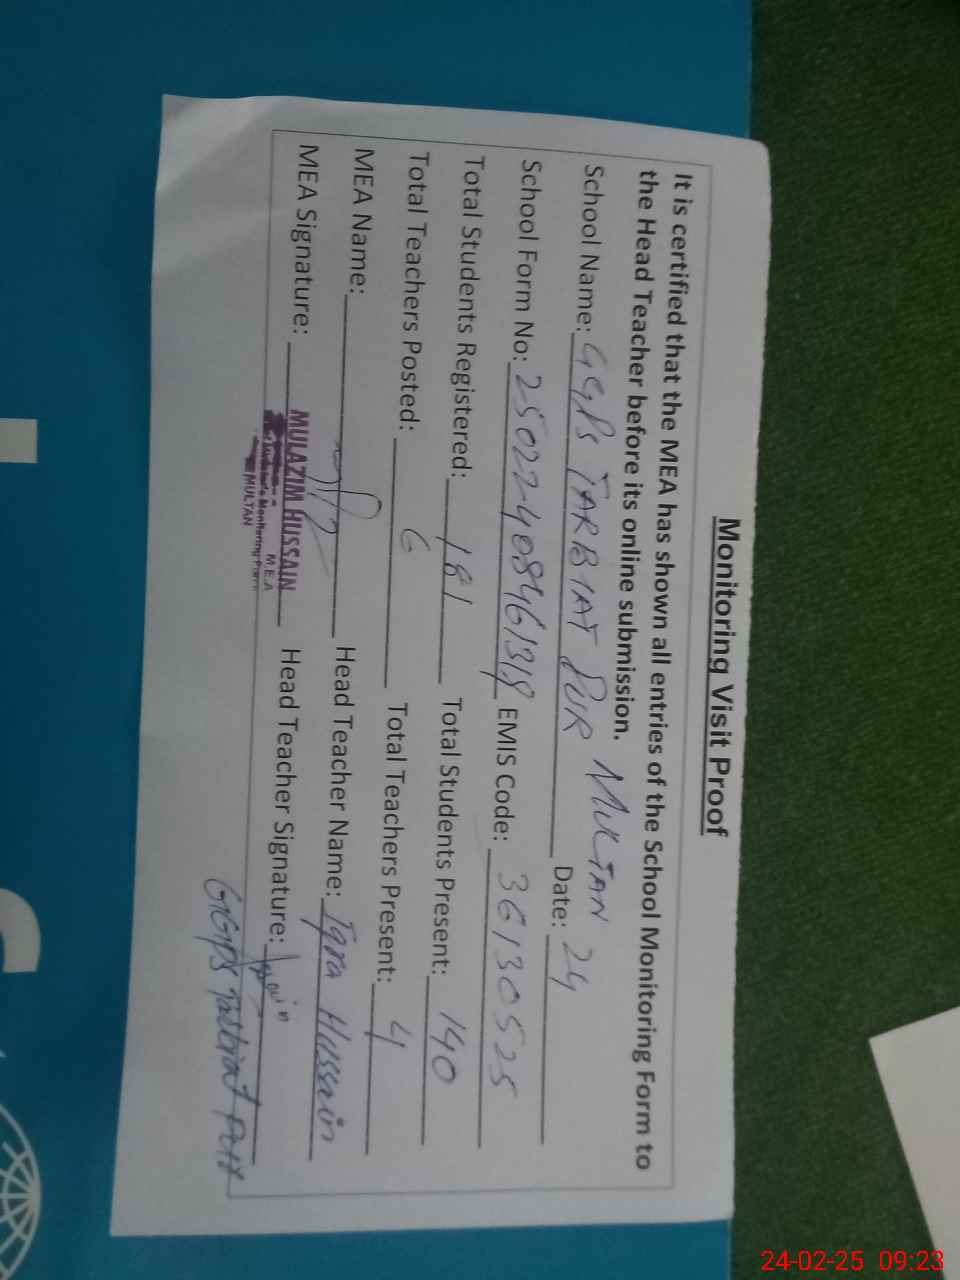 Monitoring Visit Proof
It is certified that the MEA has shown all entries of the School Monitoring Form to
the Head Teacher before its online submission.
School Name: GGPS TARBIAT PUR MULTAN Date: 24
School Form No: 25022408461318 EMIS Code: 36130525
Total Students Registered: 181 Total Students Present: 140
Total Teachers Posted: 6 Total Teachers Present: 4
MEA Name: Head Teacher Name: Iqra Hussain
MEA Signature: Head Teacher Signature:
MULAZIM HUSSAIN
M.E.A
Monitoring Force
MULTAN
GGPS Tarbiat Pur
24-02-25 09:23